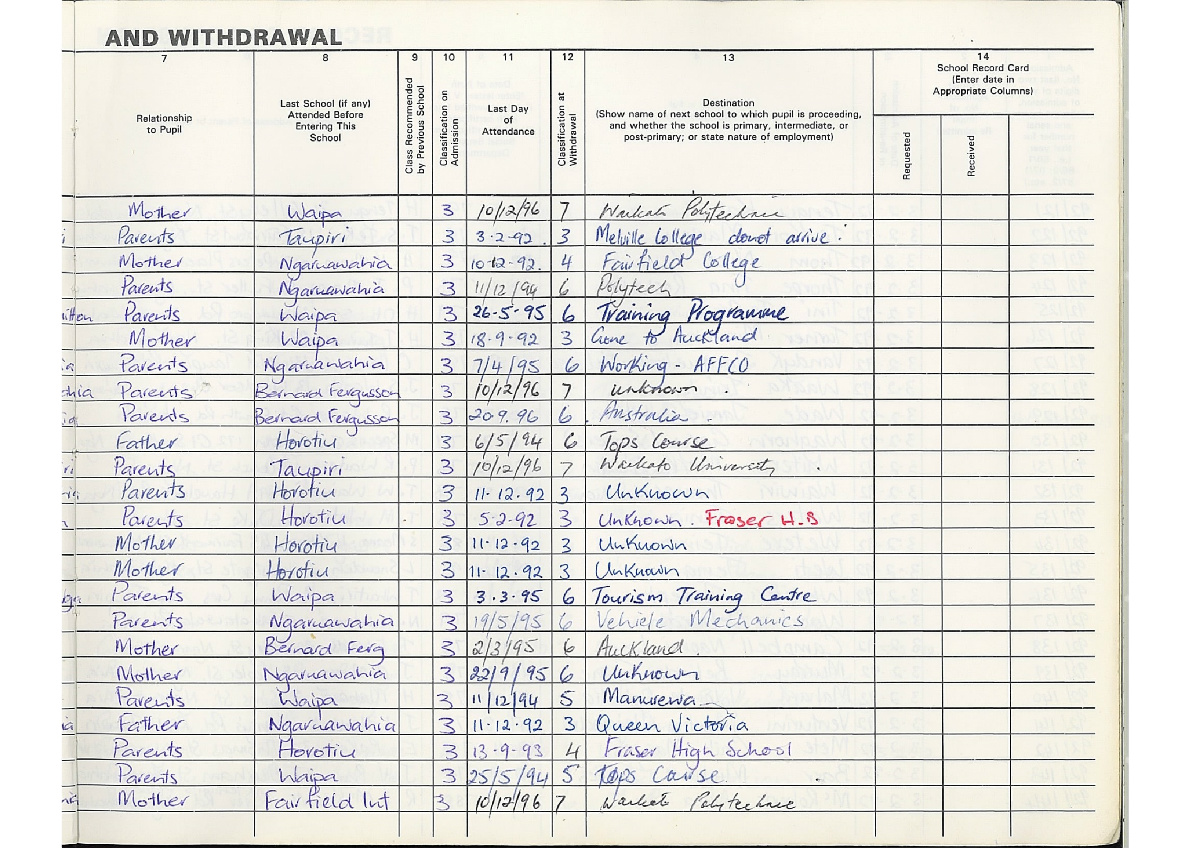 AND WITHDRAWAL
7 8 9 10 11 12 13 14
Relationship to Pupil
Last School (if any) Attended Before Entering This School
Class Recommended by Previous School
Classification on Admission
Last Day of Attendance
Classification at Withdrawal
Destination
(Show name of next school to which pupil is proceeding, and whether the school is primary, intermediate, or post-primary; or state nature of employment)
School Record Card (Enter date in Appropriate Columns)
Requested
Received
Mother Waipa 3 10/12/96 7 Waikato Polytechnic
Parents Taupiri 3 3-2-92. 3 Melville College donot arrive.
Mother Ngaruawahia 3 10-12-92. 4 Fairfield College
Parents Ngaruawahia 3 11/12/94 6 Polytech
Parents Waipa 3 26-5-95 6 Training Programme
Mother Waipa 3 18-9-92 3 Gone to Auckland
Parents Ngaruawahia 3 7/4/95 6 Working - AFFCO
Parents Bernard Fergusson 3 10/12/96 7 unknown .
Parents Bernard Fergusson 3 20.9.96 6 Australia .
Father Horotiu 3 6/5/94 6 Tops Course
Parents Taupiri 3 10/12/96 7 Waikato University .
Parents Horotiu 3 11-12-92 3 UnKnown
Parents Horotiu 3 5-2-92 3 UnKnown . Fraser H.S
Mother Horotiu 3 11-12-92 3 UnKnown
Mother Horotiu 3 11-12-92 3 UnKnown
Parents Waipa 3 3.3.95 6 Tourism Training Centre
Parents Ngaruawahia 3 19/5/95 6 Vehicle Mechanics
Mother Bernard Ferg 3 2/3/95 6 Auckland .
Mother Ngaruawahia 3 22/9/95 6 UnKnown
Parents Waipa 3 11/12/94 5 Manurewa
Father Ngaruawahia 3 11-12-92 3 Queen Victoria
Parents Horotiu 3 13-9-93 4 Fraser High School
Parents Waipa 3 25/5/94 5 Tops Course
Mother Fairfield Int 3 10/12/96 7 Waikato Polytechnic